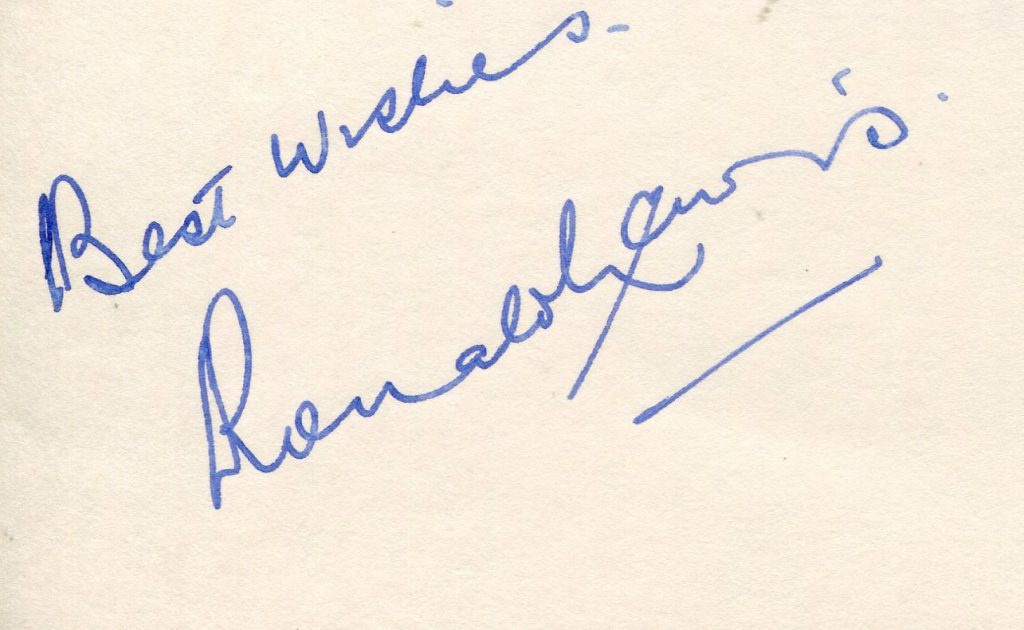 Best Wishes.
Ronald Lewis.